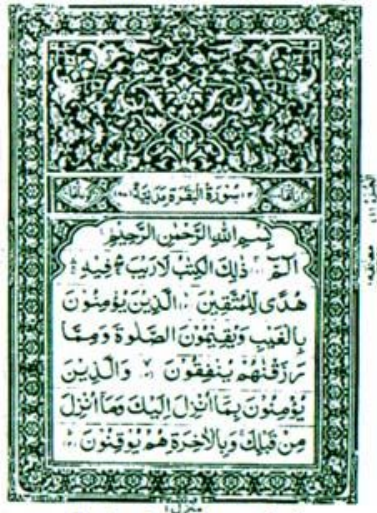 سُوْرَةُ الْبَقَرَةِ مَدَنِيَّةٌ
بِسْمِ اللهِ الرَّحْمٰنِ الرَّحِيْمِ
الٓمّٓ ذٰلِكَ الْكِتٰبُ لَا رَيْبَ فِيْهِ
هُدًى لِّلْمُتَّقِيْنَ الَّذِيْنَ يُؤْمِنُوْنَ
بِالْغَيْبِ وَيُقِيْمُوْنَ الصَّلٰوةَ وَمِمَّا
رَزَقْنٰهُمْ يُنْفِقُوْنَ وَالَّذِيْنَ
يُؤْمِنُوْنَ بِمَآ اُنْزِلَ اِلَيْكَ وَمَآ اُنْزِلَ
مِنْ قَبْلِكَ وَبِالْاٰخِرَةِ هُمْ يُوْقِنُوْنَ
منزل ١